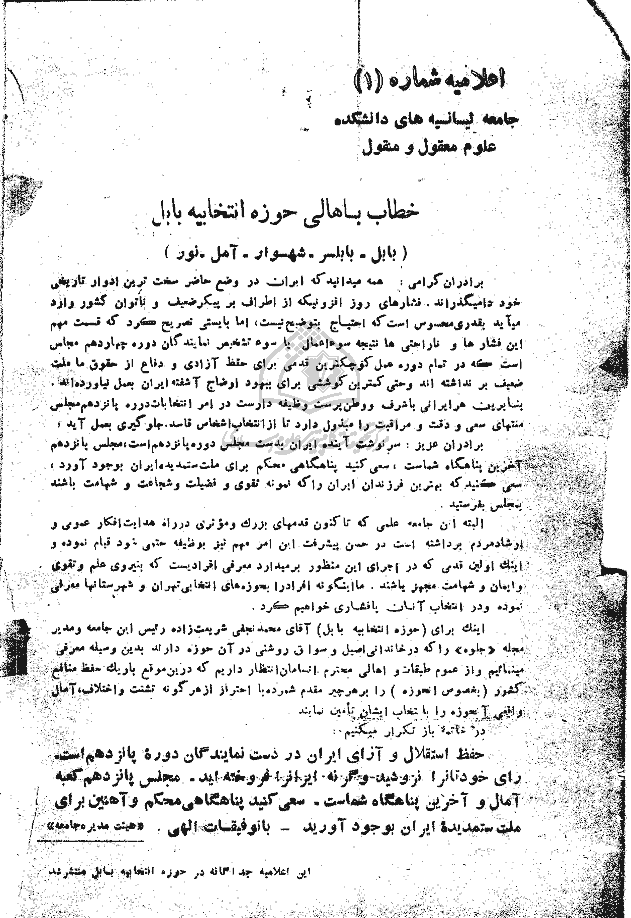 اعلامیه شماره (۱)
جامعه لیسانسیه های دانشکده
علوم معقول و منقول
خطاب باهالی حوزه انتخابیه بابل
( بابل - بابلسر - شهسوار - آمل - نور )
برادران گرامی : همه میدانید که ایران در وضع حاضر سخت ترین ادوار تاریخی
خود را میگذراند . فشارهای روز افزونیکه از اطراف بر پیکر ضعیف و ناتوان کشور وارد
میآید بقدری محسوس است که احتیاج بتوضیح نیست، اما بایستی تصریح کرد که قسمت مهم
این فشار ها و ناراحتی ها نتیجه سوء اعمال یا سوء تشخیص نمایندگان دوره چهاردهم مجلس
است که در تمام دوره عمل کوچکترین قدمی برای حفظ آزادی و دفاع از حقوق ملت
ضعیف بر نداشته اند وحتی کمترین کوششی برای بهبود اوضاع آشفته ایران بعمل نیاورده اند .
بنابرین هر ایرانی باشرف و وطن پرست وظیفه دارست در امر انتخابات دوره پانزدهم مجلس
منتهای سعی و دقت و مراقبت را مبذول دارد تا از انتخاب اشخاص فاسد جلوگیری بعمل آید ،
برادران عزیز : سرنوشت آینده ایران بدست مجلس دوره پانزدهم است، مجلس پانزدهم
آخرین پناهگاه شماست ، سعی کنید پناهگاهی محکم برای ملت ستمدیده ایران بوجود آورد ،
سعی کنید که بهترین فرزندان ایران را که نمونه تقوی و فضیلت وشجاعت و شهامت باشند
بمجلس بفرستید .
البته این جامعه علمی که تا کنون قدمهای بزرگ ومؤثری در راه هدایت افکار عمومی و
ارشاد مردم برداشته است در حسن پیشرفت این امر مهم نیز بوظیفه حتمی خود قیام نموده و
اینك اولین قدمی که در اجرای این منظور برمیدارد معرفی افرادیست که بنیروی علم وتقوی
وایمان و شهامت مجهز باشند . ما اینگونه افراد را بحوزه های انتخابی تهران و شهرستانها معرفی
نموده ودر انتخاب آنان پافشاری خواهیم کرد .
اینك برای (حوزه انتخابیه بابل) آقای محمد نجفی شریعت زاده رئیس این جامعه ومدیر
مجله «جلوه» را که در خاندانی اصیل و سوابق روشنی در آن حوزه دارند بدین وسیله معرفی
مینمائیم واز عموم طبقات و اهالی محترم آنسامان انتظار داریم که درین موقع باریك حفظ منافع
کشور (بخصوص آنحوزه ) را بر هر چیز مقدم شمرده با احتراز از هر گونه تشتت واختلاف، آمال
واقعی آنحوزه را با انتخاب ایشان تأمین نمایند
در خاتمه باز تکرار میکنیم :
حفظ استقلال و آزای ایران در دست نمایندگان دورهٔ پانزدهم است.
رای خودتانرا نروشید وگرنه ایرانرا فروخته اید . مجلس پانزدهم کعبه
آمال و آخرین پناهگاه شماست . سعی کنید پناهگاهی محکم وآهنین برای
ملت ستمدیدهٔ ایران بوجود آورید – باتوفیقات الهی . «هیئت مدیره جامعه»
این اعلامیه جداگانه در حوزه انتخابیه بابل منتشر شد